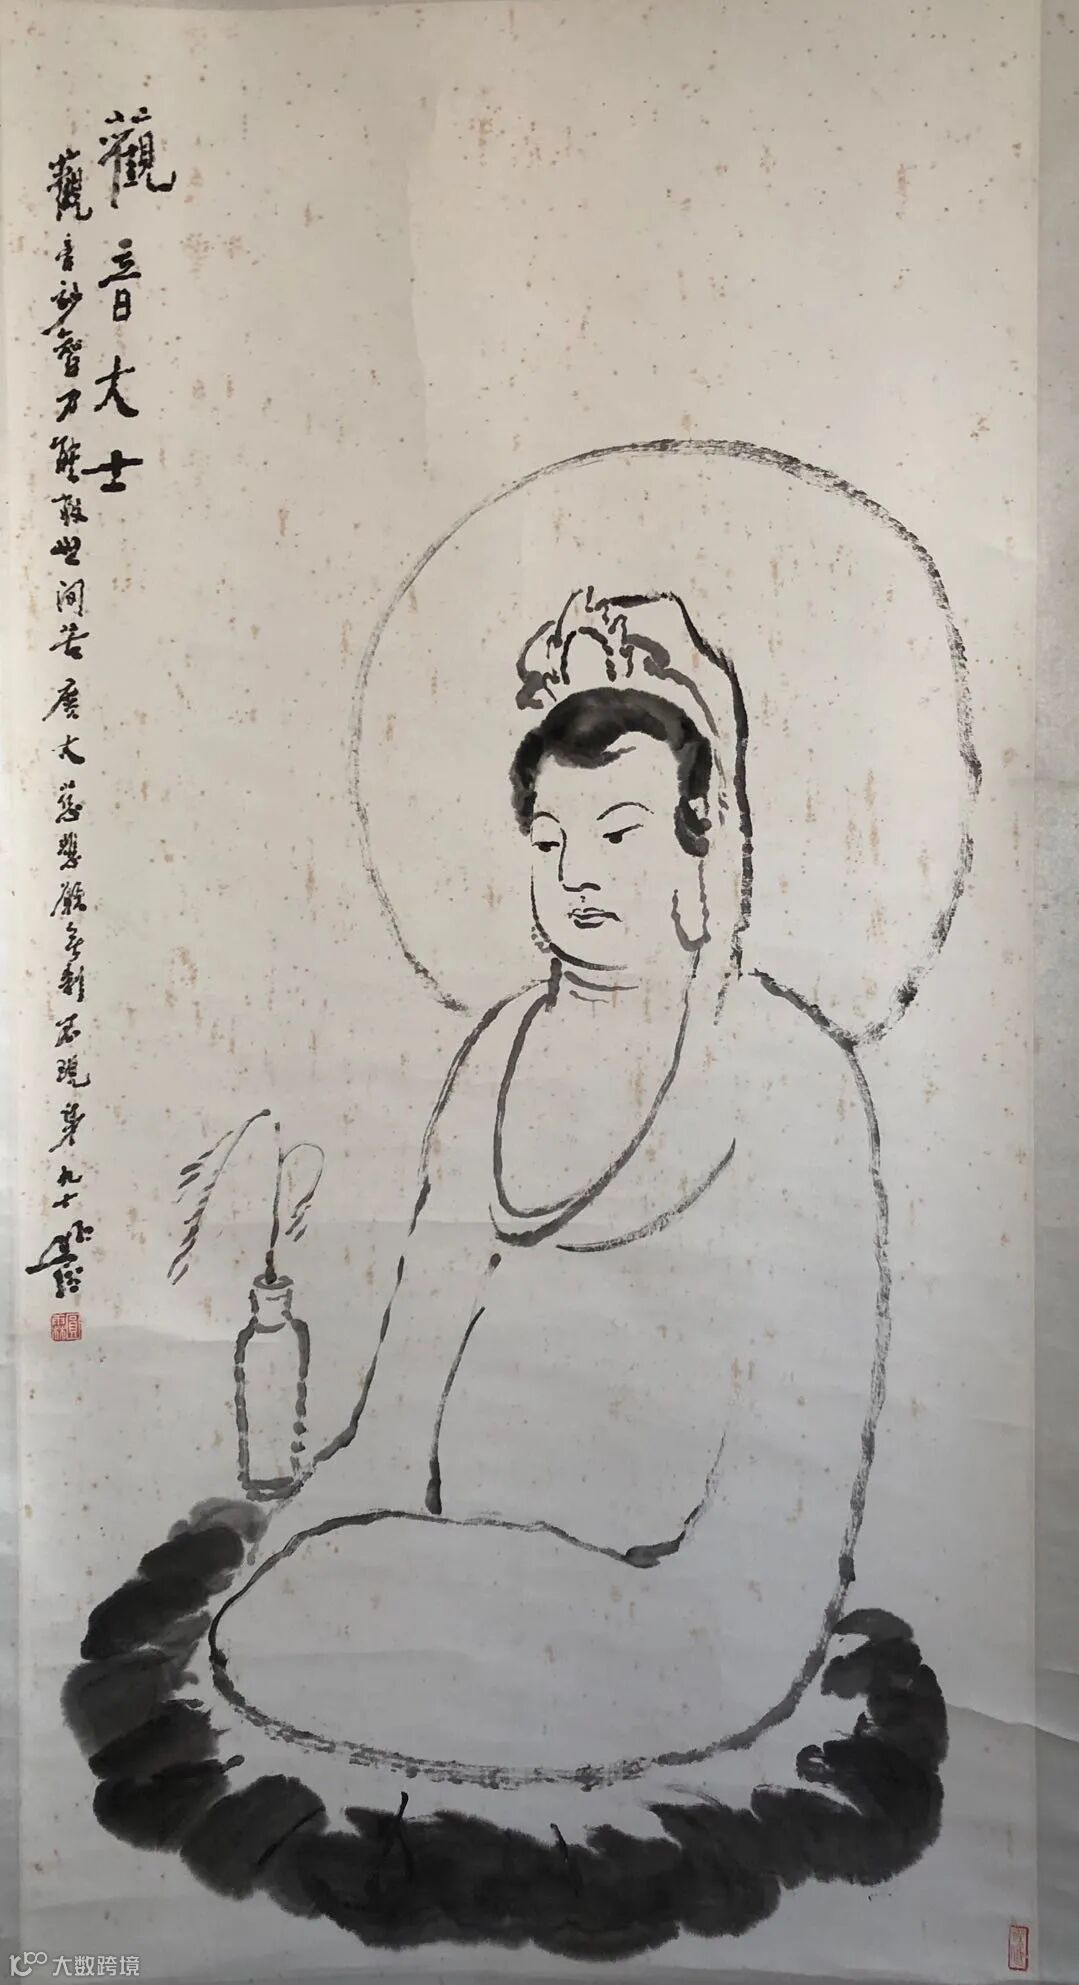 觀音大士
觀音妙智力能救世間苦廣大慈悲願無剎不現身九七
圓霖
大数跨境